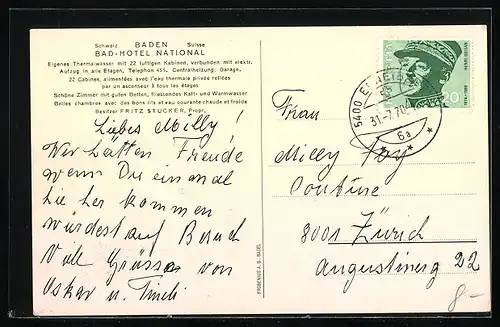 Schweiz BADEN Suisse
BAD-HOTEL NATIONAL
Eigenes Thermalwasser mit 22 luftigen Kabinen, verbunden mit elektr.
Aufzug in alle Etagen, Telephon 455, Centralheizung, Garage,
22 Cabines, alimentées avec l'eau thermale privée reliées
par un ascenseur à tous les étages
Schöne Zimmer mit guten Betten, fliessendes Kalt- und Warmwasser
Belles chambres avec des bons lits et eau courante chaude et froide
Besitzer FRITZ STUCKER, Propr.
Liebes Milly!
Wir hätten Freude
wenn Du einmal
hie her kommen
würdest auf Besuch
Viele Grüsse von
Oskar u.
FROBENIUS A. G. BASEL
HELVETIA
HENRI GUISAN
20
5400
31.-7.70
6a
Frau
Milly
Couture
8001 Zürich
Augustinerg 22
8-